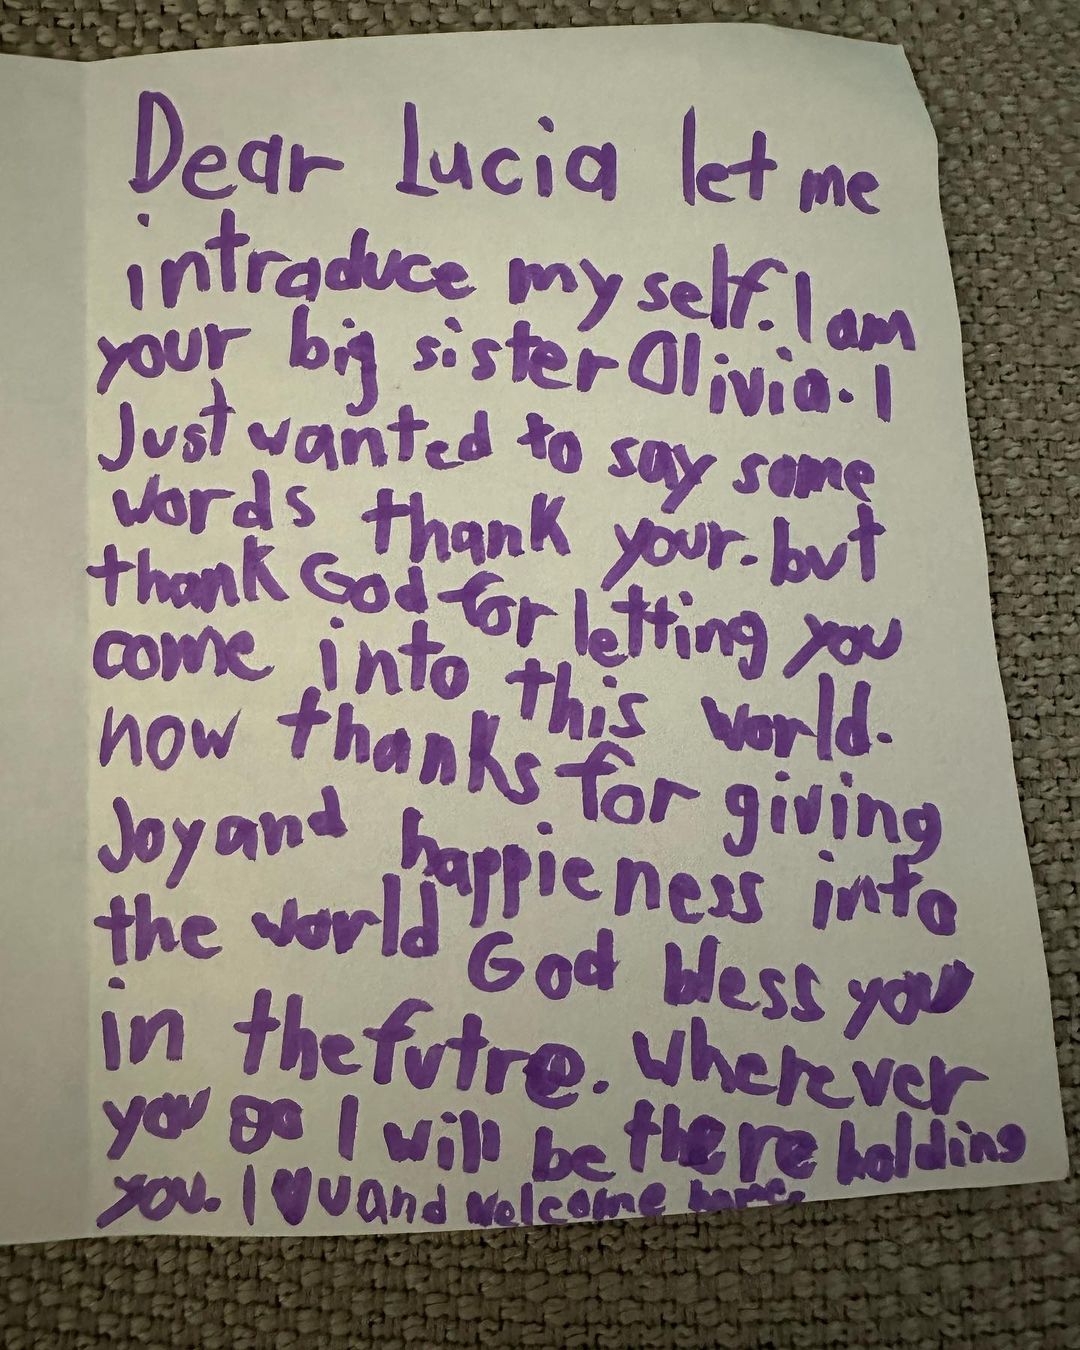 Dear Lucia let me
intraduce my self. I am
your big sister Olivia. I
Just wanted to say some
words thank your. but
thank God for letting you
come into this world.
now thanks for giving
Joy and happieness into
the world God bless you
in the futre. wherever
you go I will be there holding
you. I ♥ U and welcome home.